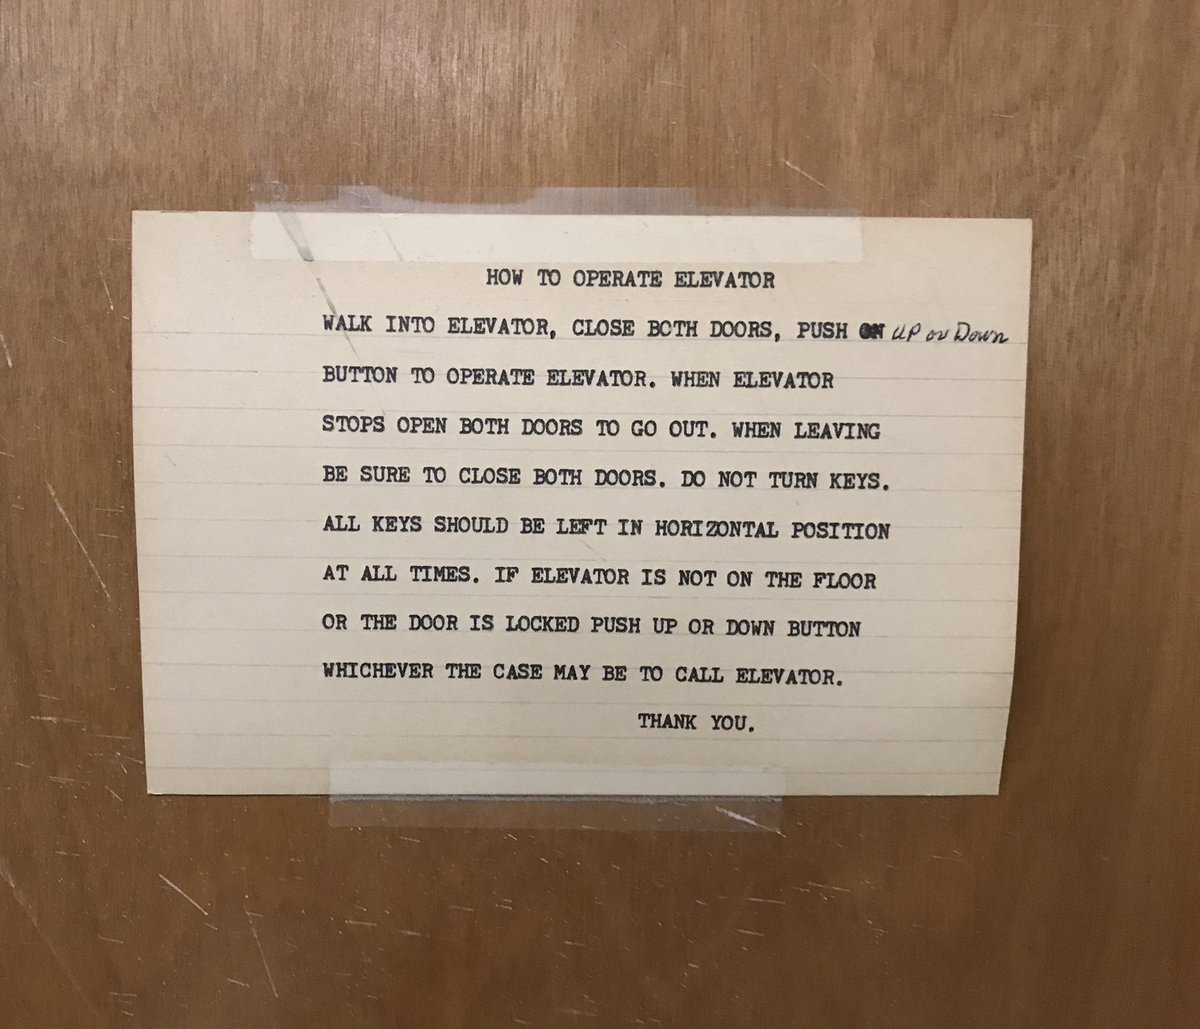 HOW TO OPERATE ELEVATOR
WALK INTO ELEVATOR, CLOSE BOTH DOORS, PUSH ON UP or Down
BUTTON TO OPERATE ELEVATOR. WHEN ELEVATOR
STOPS OPEN BOTH DOORS TO GO OUT. WHEN LEAVING
BE SURE TO CLOSE BOTH DOORS. DO NOT TURN KEYS.
ALL KEYS SHOULD BE LEFT IN HORIZONTAL POSITION
AT ALL TIMES. IF ELEVATOR IS NOT ON THE FLOOR
OR THE DOOR IS LOCKED PUSH UP OR DOWN BUTTON
WHICHEVER THE CASE MAY BE TO CALL ELEVATOR.
THANK YOU.